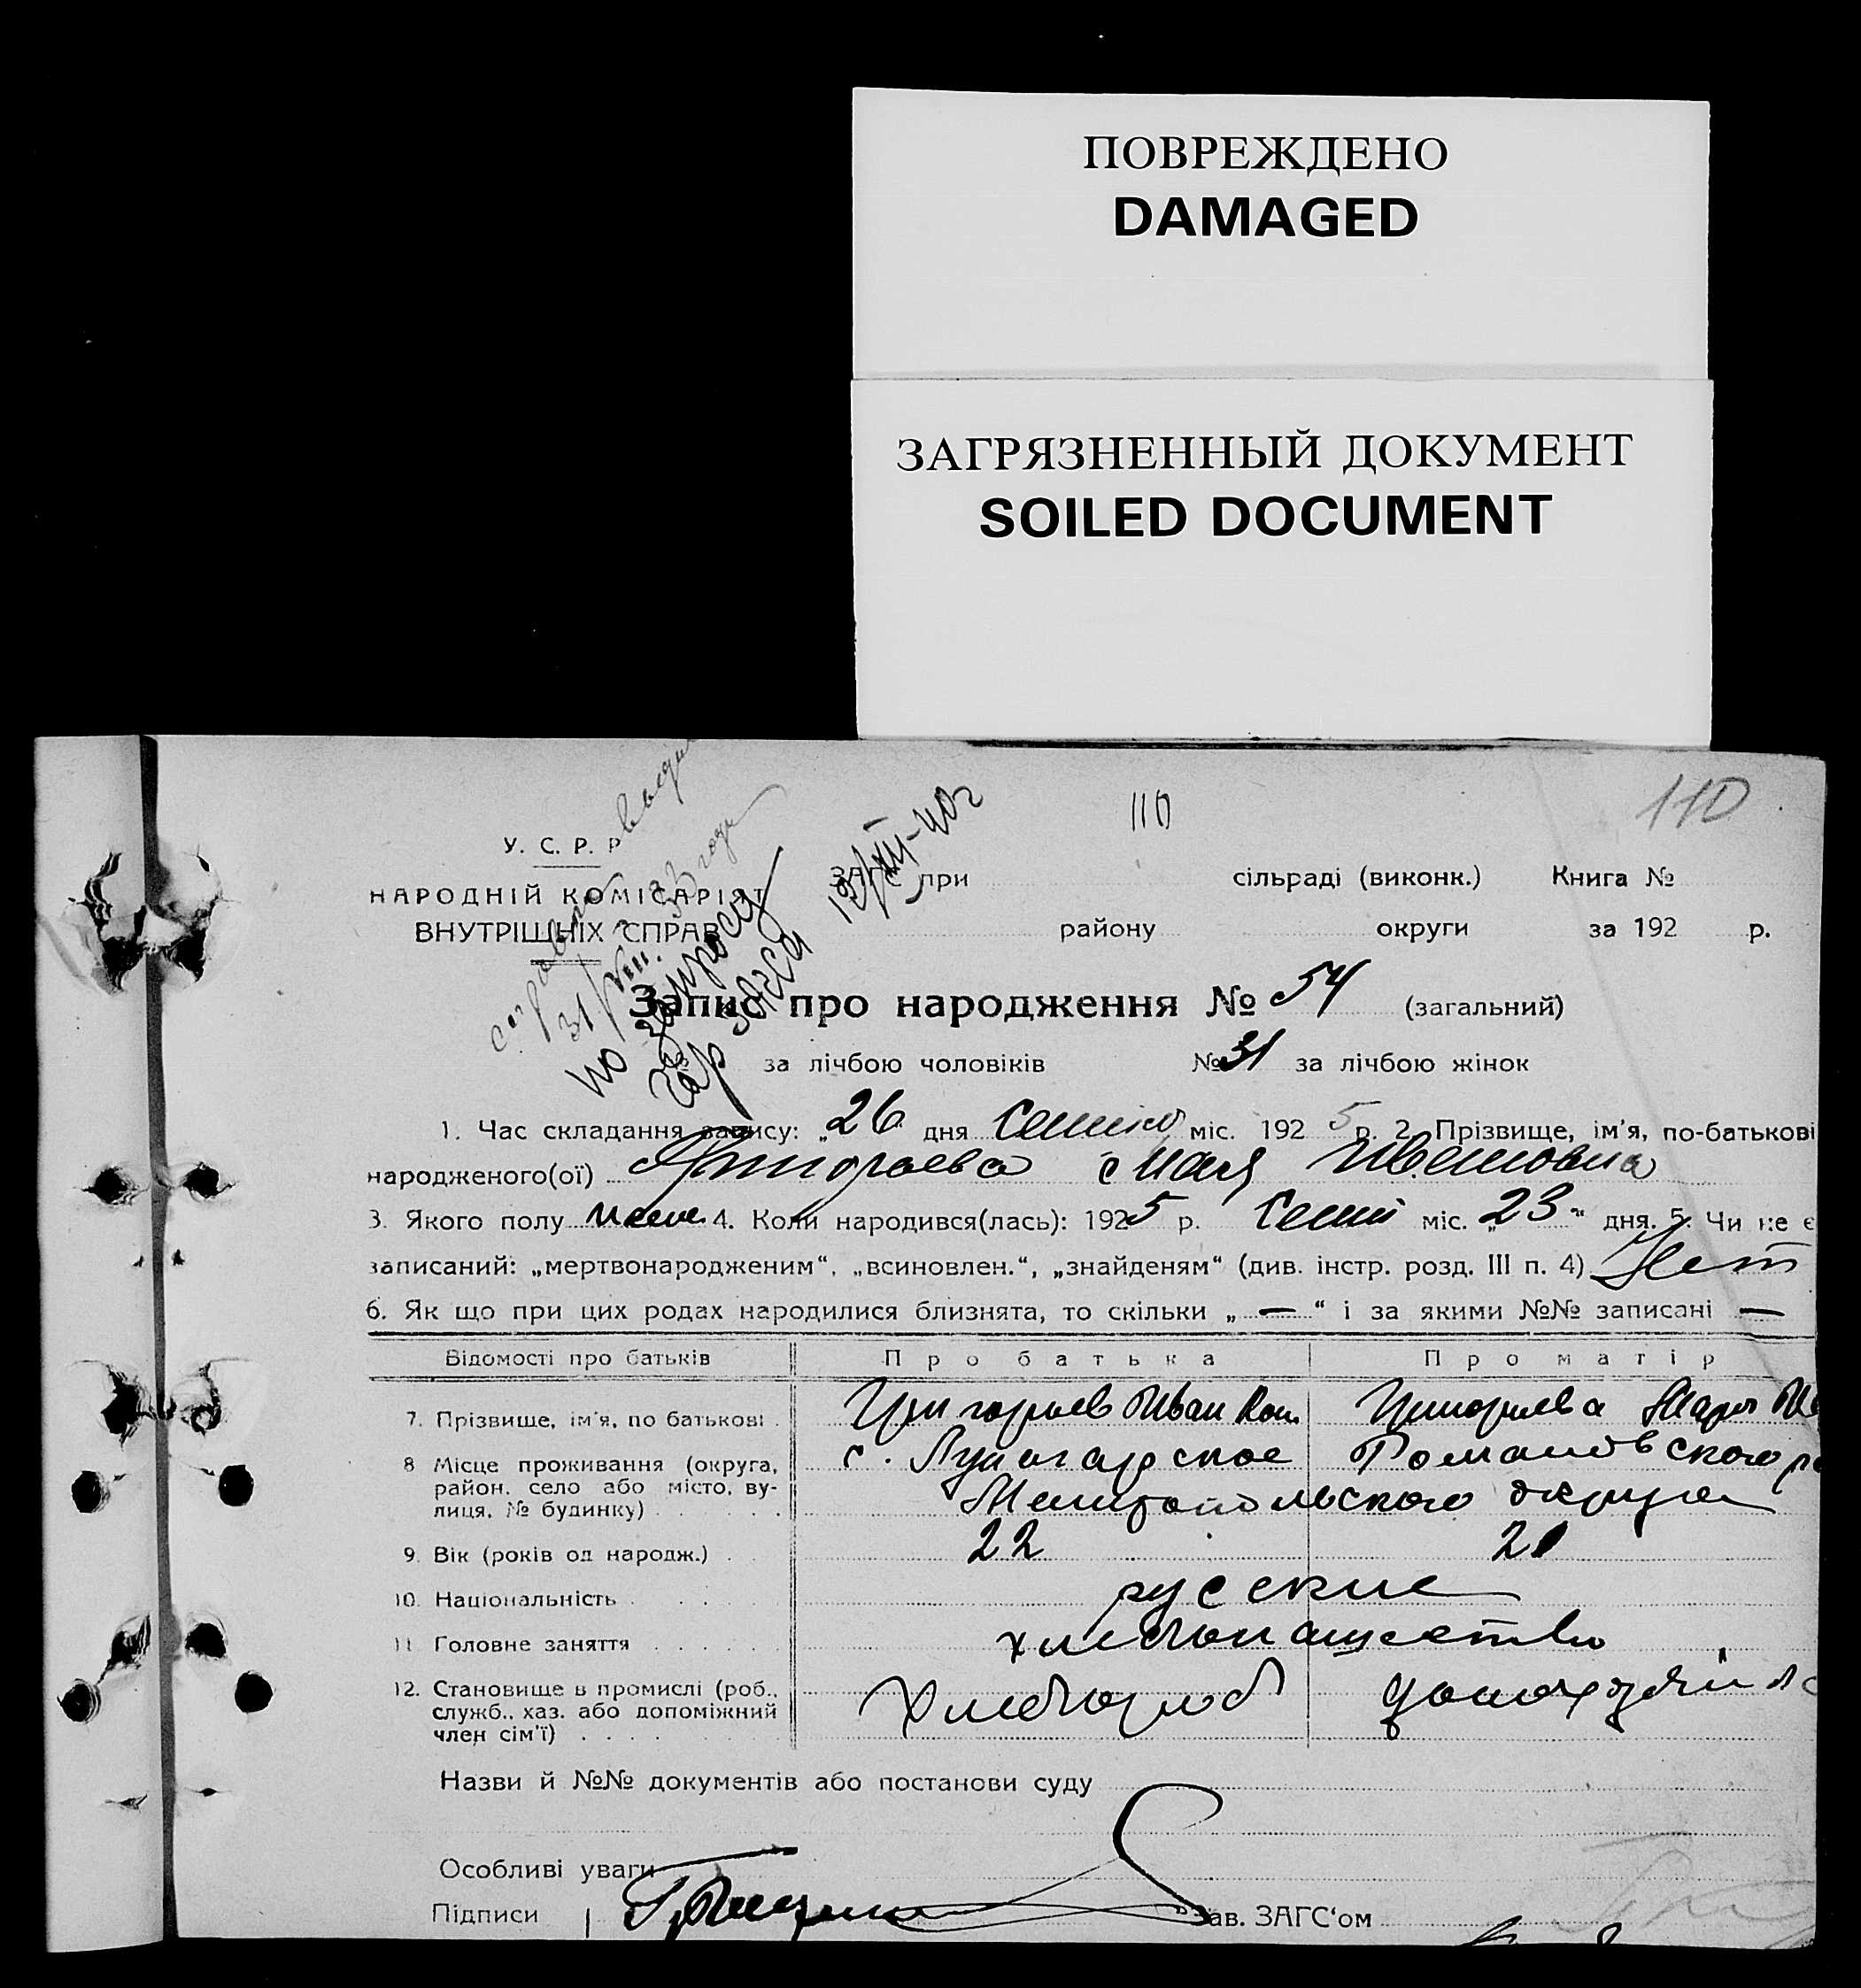 ПОВРЕЖДЕНО
DAMAGED
ЗАГРЯЗНЕННЫЙ ДОКУМЕНТ
SOILED DOCUMENT
110
110
У. С. Р. Р.
ЗАГС при сільраді (виконк.) Книга №
НАРОДНІЙ КОМІСАРІЯТ
ВНУТРІШНІХ СПРАВ
району округи за 192 р.
31/VIII. 33 года
по запросу
загса
Запис про народження № 54 (загальний)
№ за лічбою чоловіків № 31 за лічбою жінок
1. Час складання запису: „26 дня міс. 1925 р. 2. Прізвище, ім'я, по-батькові
народженого(ої) Григорьева Ивановна
3. Якого полу 4. Коли народився(лась): 1925 р. міс. „23“ дня. 5. Чи не є
записаний: „мертвонародженим“, „всиновлен.“, „знайденям“ (див. інстр. розд. III п. 4) Нет
6. Як що при цих родах народилися близнята, то скільки „—“ і за якими №№ записані —
Відомості про батьків Про батька Про матір
7. Прізвище, ім'я, по батькові Григорьев Иван Григорьева
8 Місце проживання (округа, район, село або місто, вулиця, № будинку) с. Романовского
Мелитопольского округа
9. Вік (років од народж.) 22 21
10. Національність русские
11. Головне заняття хлебопашество
12. Становище в промислі (роб., служб., хаз. або допоміжний член сім'ї) Хлебороб
Назви й №№ документів або постанови суду
Особливі уваги
Підписи Зав. ЗАГС'ом